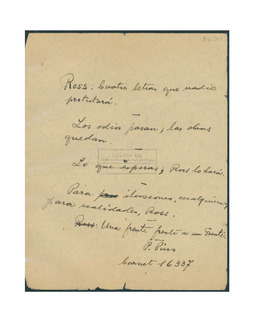 Ross. Cuatro letras que nadie
protestará.
Los odios pasan; las obras
quedan.
Lo que esperas, Ross lo hará
Para ilusiones, cualquiera;
para realidades, Ross.
Ross: Una frente frente a un Frente.
P. Pino
Carnet 16337